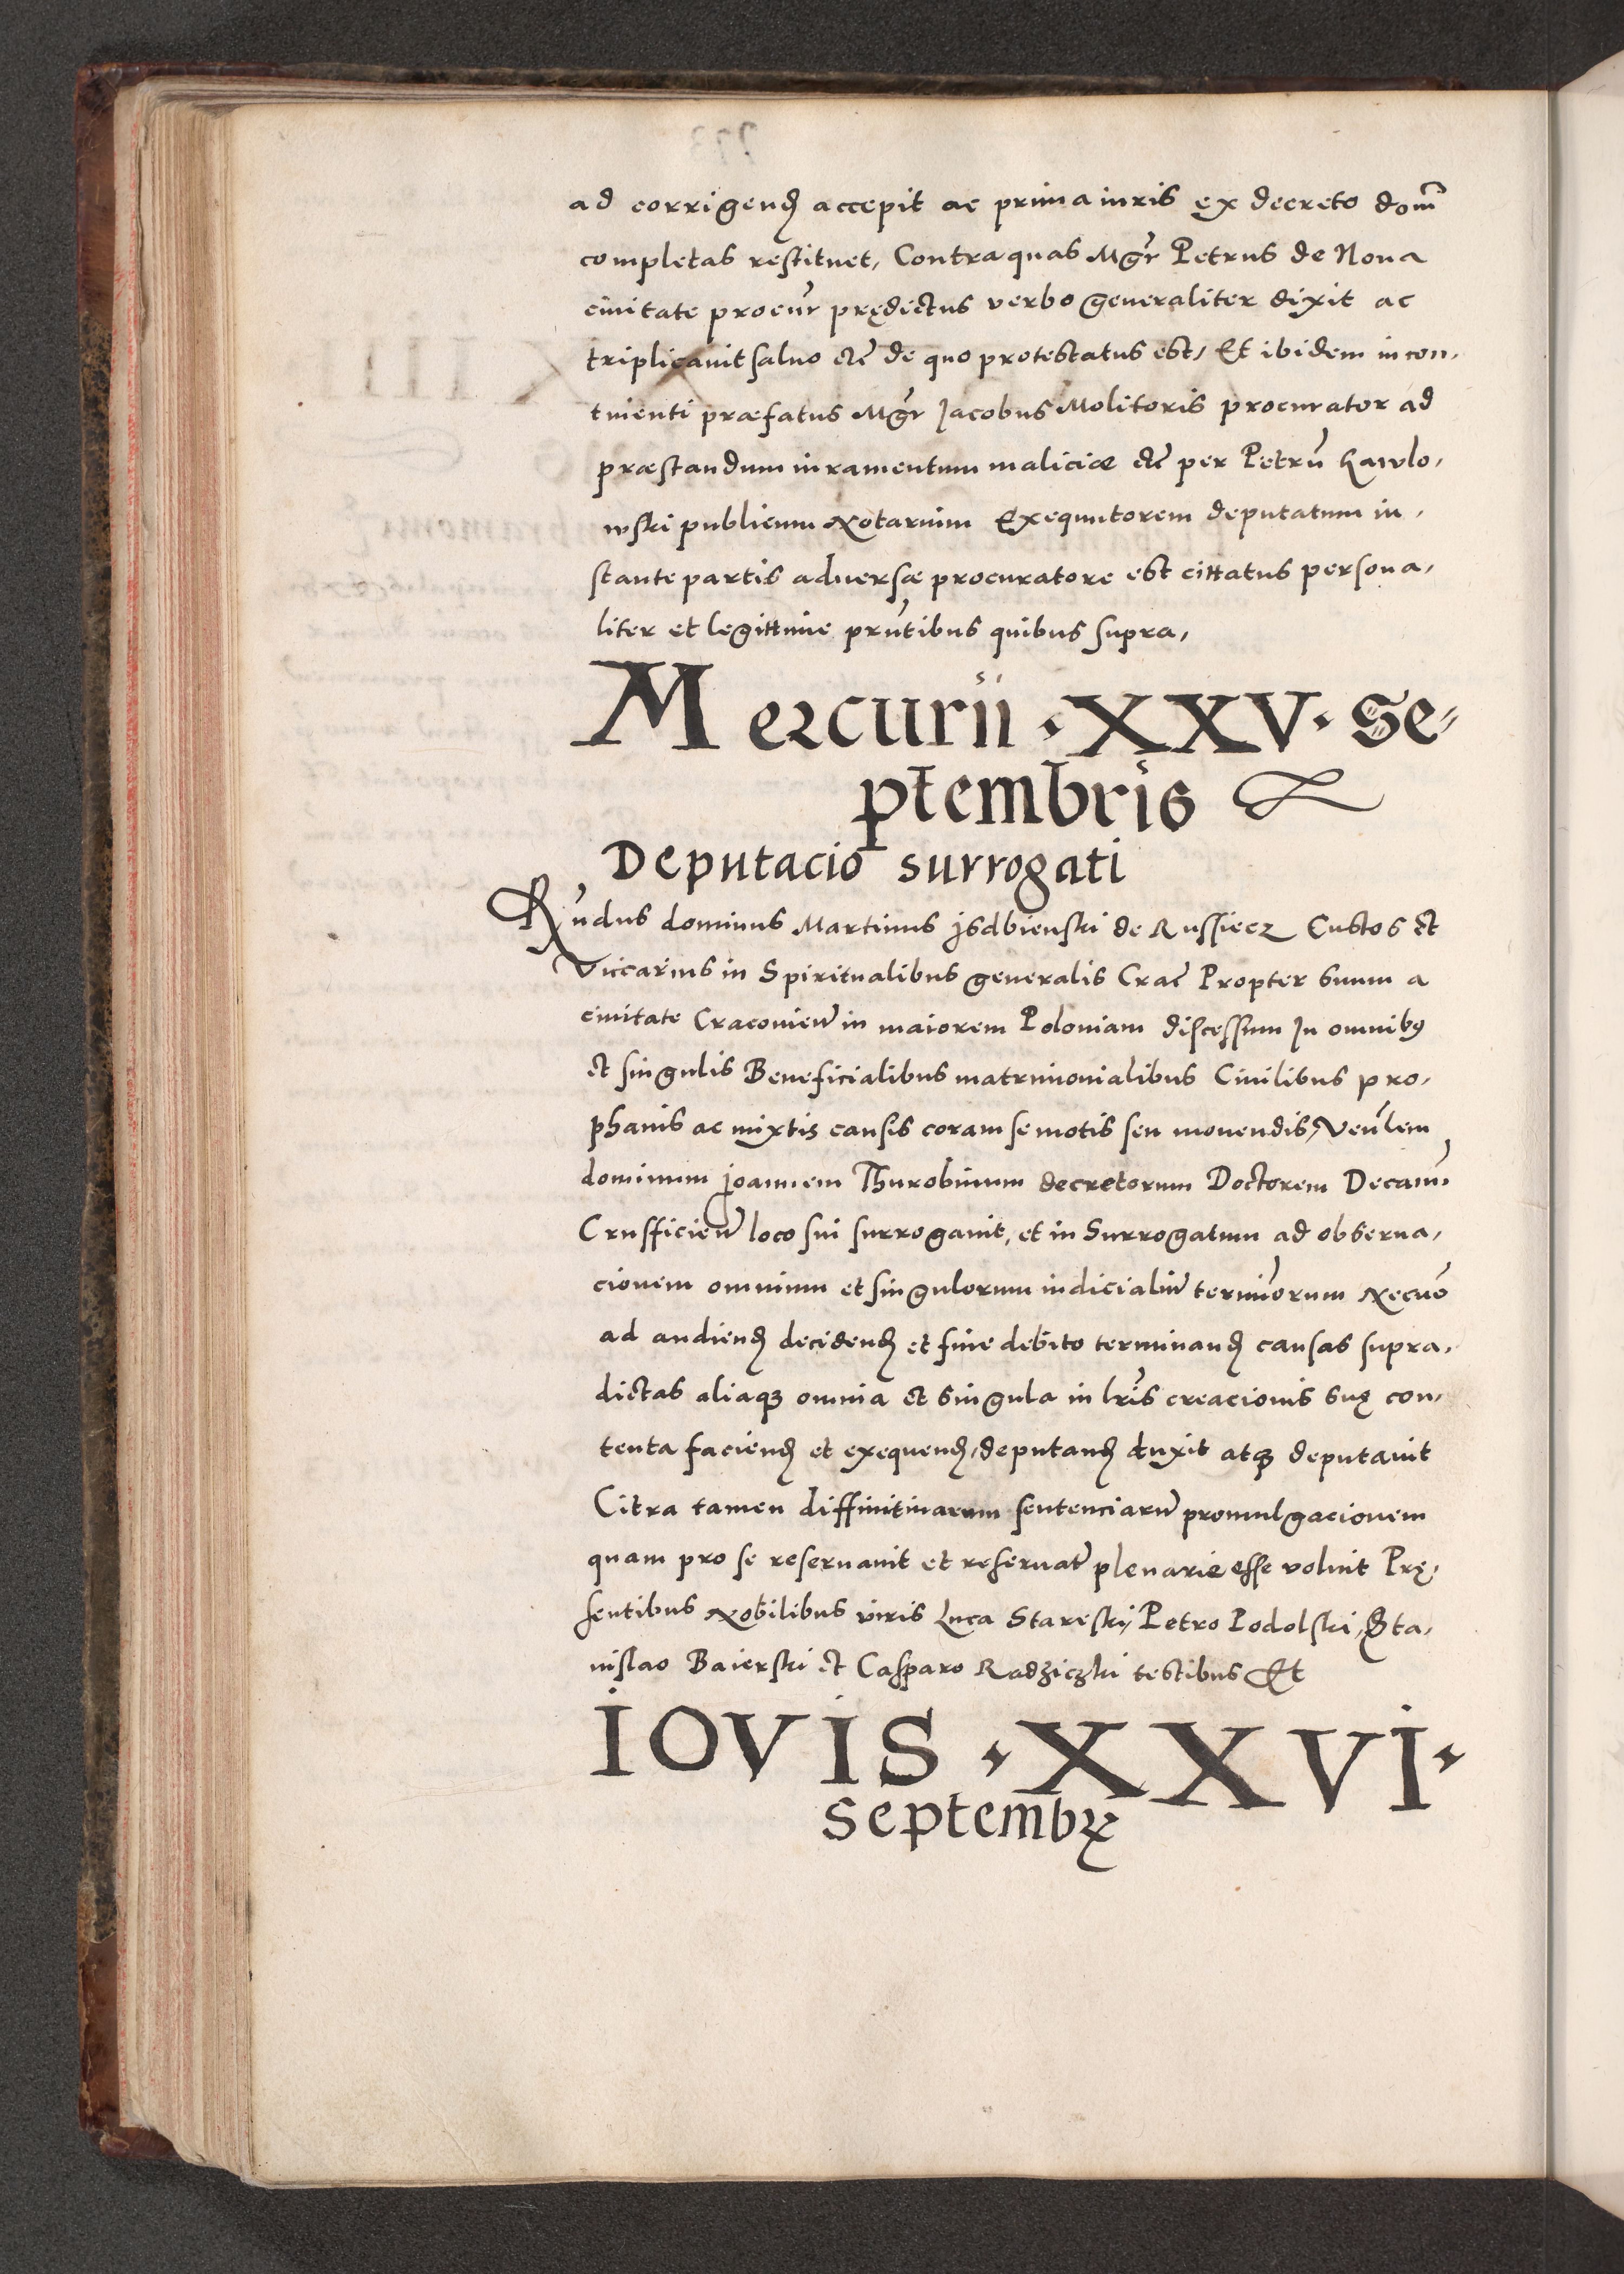 ad corrigend accepit ac prima iuris ex decreto dom̄
completas restituet, Contra quas Mgr̄ Petrus de Noua
ciuitate procur̄ prędictus verbo generaliter dixit ac
triplicauit saluo etc̄ de quo protestatus est, Et ibidem in con,
tinenti præfatus Mgr̄ Jacobus Molitoris procurator ad
præstandum iuramentum maliciæ etc̄ per Petrū Kawlo,
wski publicum Notarium Exequutorem deputatum in,
stante partis aduersæ procuratore est cittatus persona,
liter et legittime prn̄tibus quibus supra,
Mercurii · XXV · Se,
ptembris
Deputacio surrogati
Rn̄dus dominus Martinus Jsdbienski de Russiecz Custos et
Viccarius in Spiritualibus generalis Crac̄ Propter suum a
ciuitate Cracouien̄ in maiorem Poloniam discessum Jn omnibꝰ
et singulis Beneficialibus matrimonialibus Ciuilibus pro,
phanis ac mixtis causis coram se motis seu mouendis, Ven̄lem
dominum Joannem Thurobinum decretorum Doctorem Decanū
Crusficien̄ loco sui surrogauit, et in Surrogatum ad obserua,
cionem omnium et singulorum iudicialiū terminorum Necnō
ad audiend decidend et fine debito terminand causas supra,
dictas aliaqꝫ omnia et singula in lr̄is creacionis suę con,
tenta faciend et exequend, deputand duxit atqꝫ deputauit
Citra tamen diffinitiuarum sentenciarū promulgacionem
quam pro se reseruauit et reseruat̄ plenarie esse voluit Prę,
sentibus Nobilibus viris Luca Stareski, Petro Podolski, Sta,
nislao Baierski et Casparo Radziczki testibus Et
IOVIS · XXVI ·
Septembrꝭ